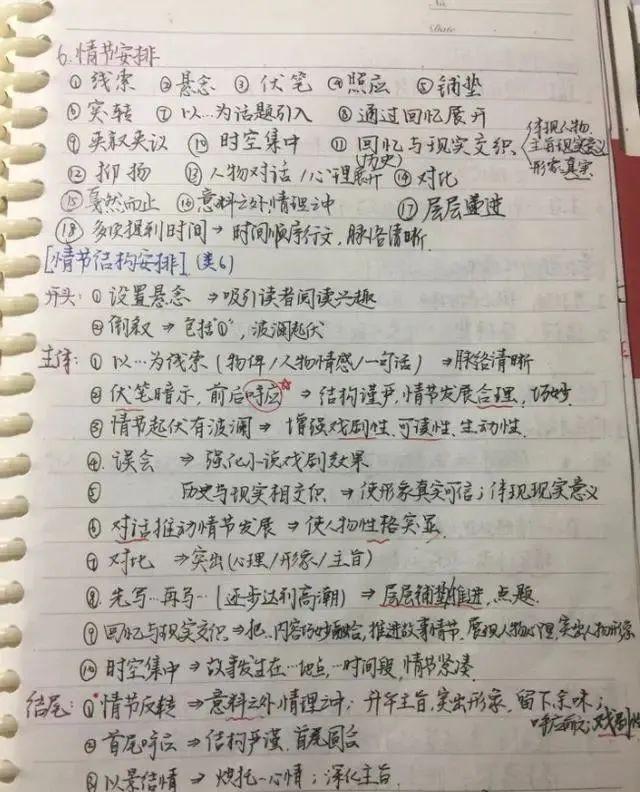 No.
Date
6.情节安排
①线索 ②悬念 ③伏笔 ④照应 ⑤铺垫
⑥突转 ⑦以…为话题引入 ⑧通过回忆展开
⑨夹叙夹议 ⑩时空集中 ⑪回忆与现实交织
(历史)
体现人物
主旨现实意义
形象真实
⑫抑扬 ⑬人物对话/心理展开 ⑭对比
⑮戛然而止 ⑯意料之外,情理之中 ⑰层层递进
⑱多次提到时间→时间顺序行文,脉络清晰
[情节结构安排](类6)
开头:①设置悬念⇒吸引读者阅读兴趣
②倒叙⇒包括"①",波澜起伏
主体:①以…为线索(物件/人物情感/一句话)⇒脉络清晰
②伏笔暗示,前后呼应☆⇒结构谨严,情节发展合理,巧妙
③情节起伏有波澜⇒增强戏剧性、可读性、生动性
④误会⇒强化小说戏剧效果
⑤历史与现实相交织⇒使形象真实可信;体现现实意义
⑥对话推动情节发展⇒使人物性格突显
⑦对比⇒突出(心理/形象/主旨)
⑧先写…再写…(逐步达到高潮)⇒层层铺垫推进,点题
⑨回忆与现实交织⇒把…内容巧妙融合,推进故事情节,展现人物心理,突出人物形象
⑩时空集中⇒故事发生在…地点,…时间段,情节紧凑
结尾:①情节反转⇒意料之外,情理之中;升华主旨,突出形象,留下余味;
呼应前文;戏剧性
②首尾呼应⇒结构严谨,首尾圆合
③以景结情⇒烘托…心情;深化主旨